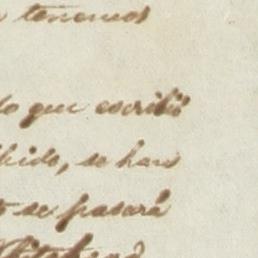 tenemos
lo que escribió
bido, se han
to se pasará